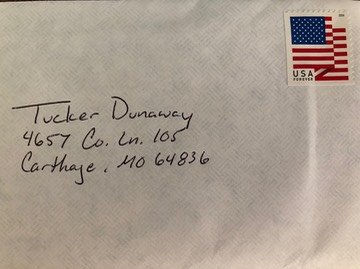 USA
FOREVER
Tucker Dunaway
4657 Co. Ln. 105
Carthage, MO 64836